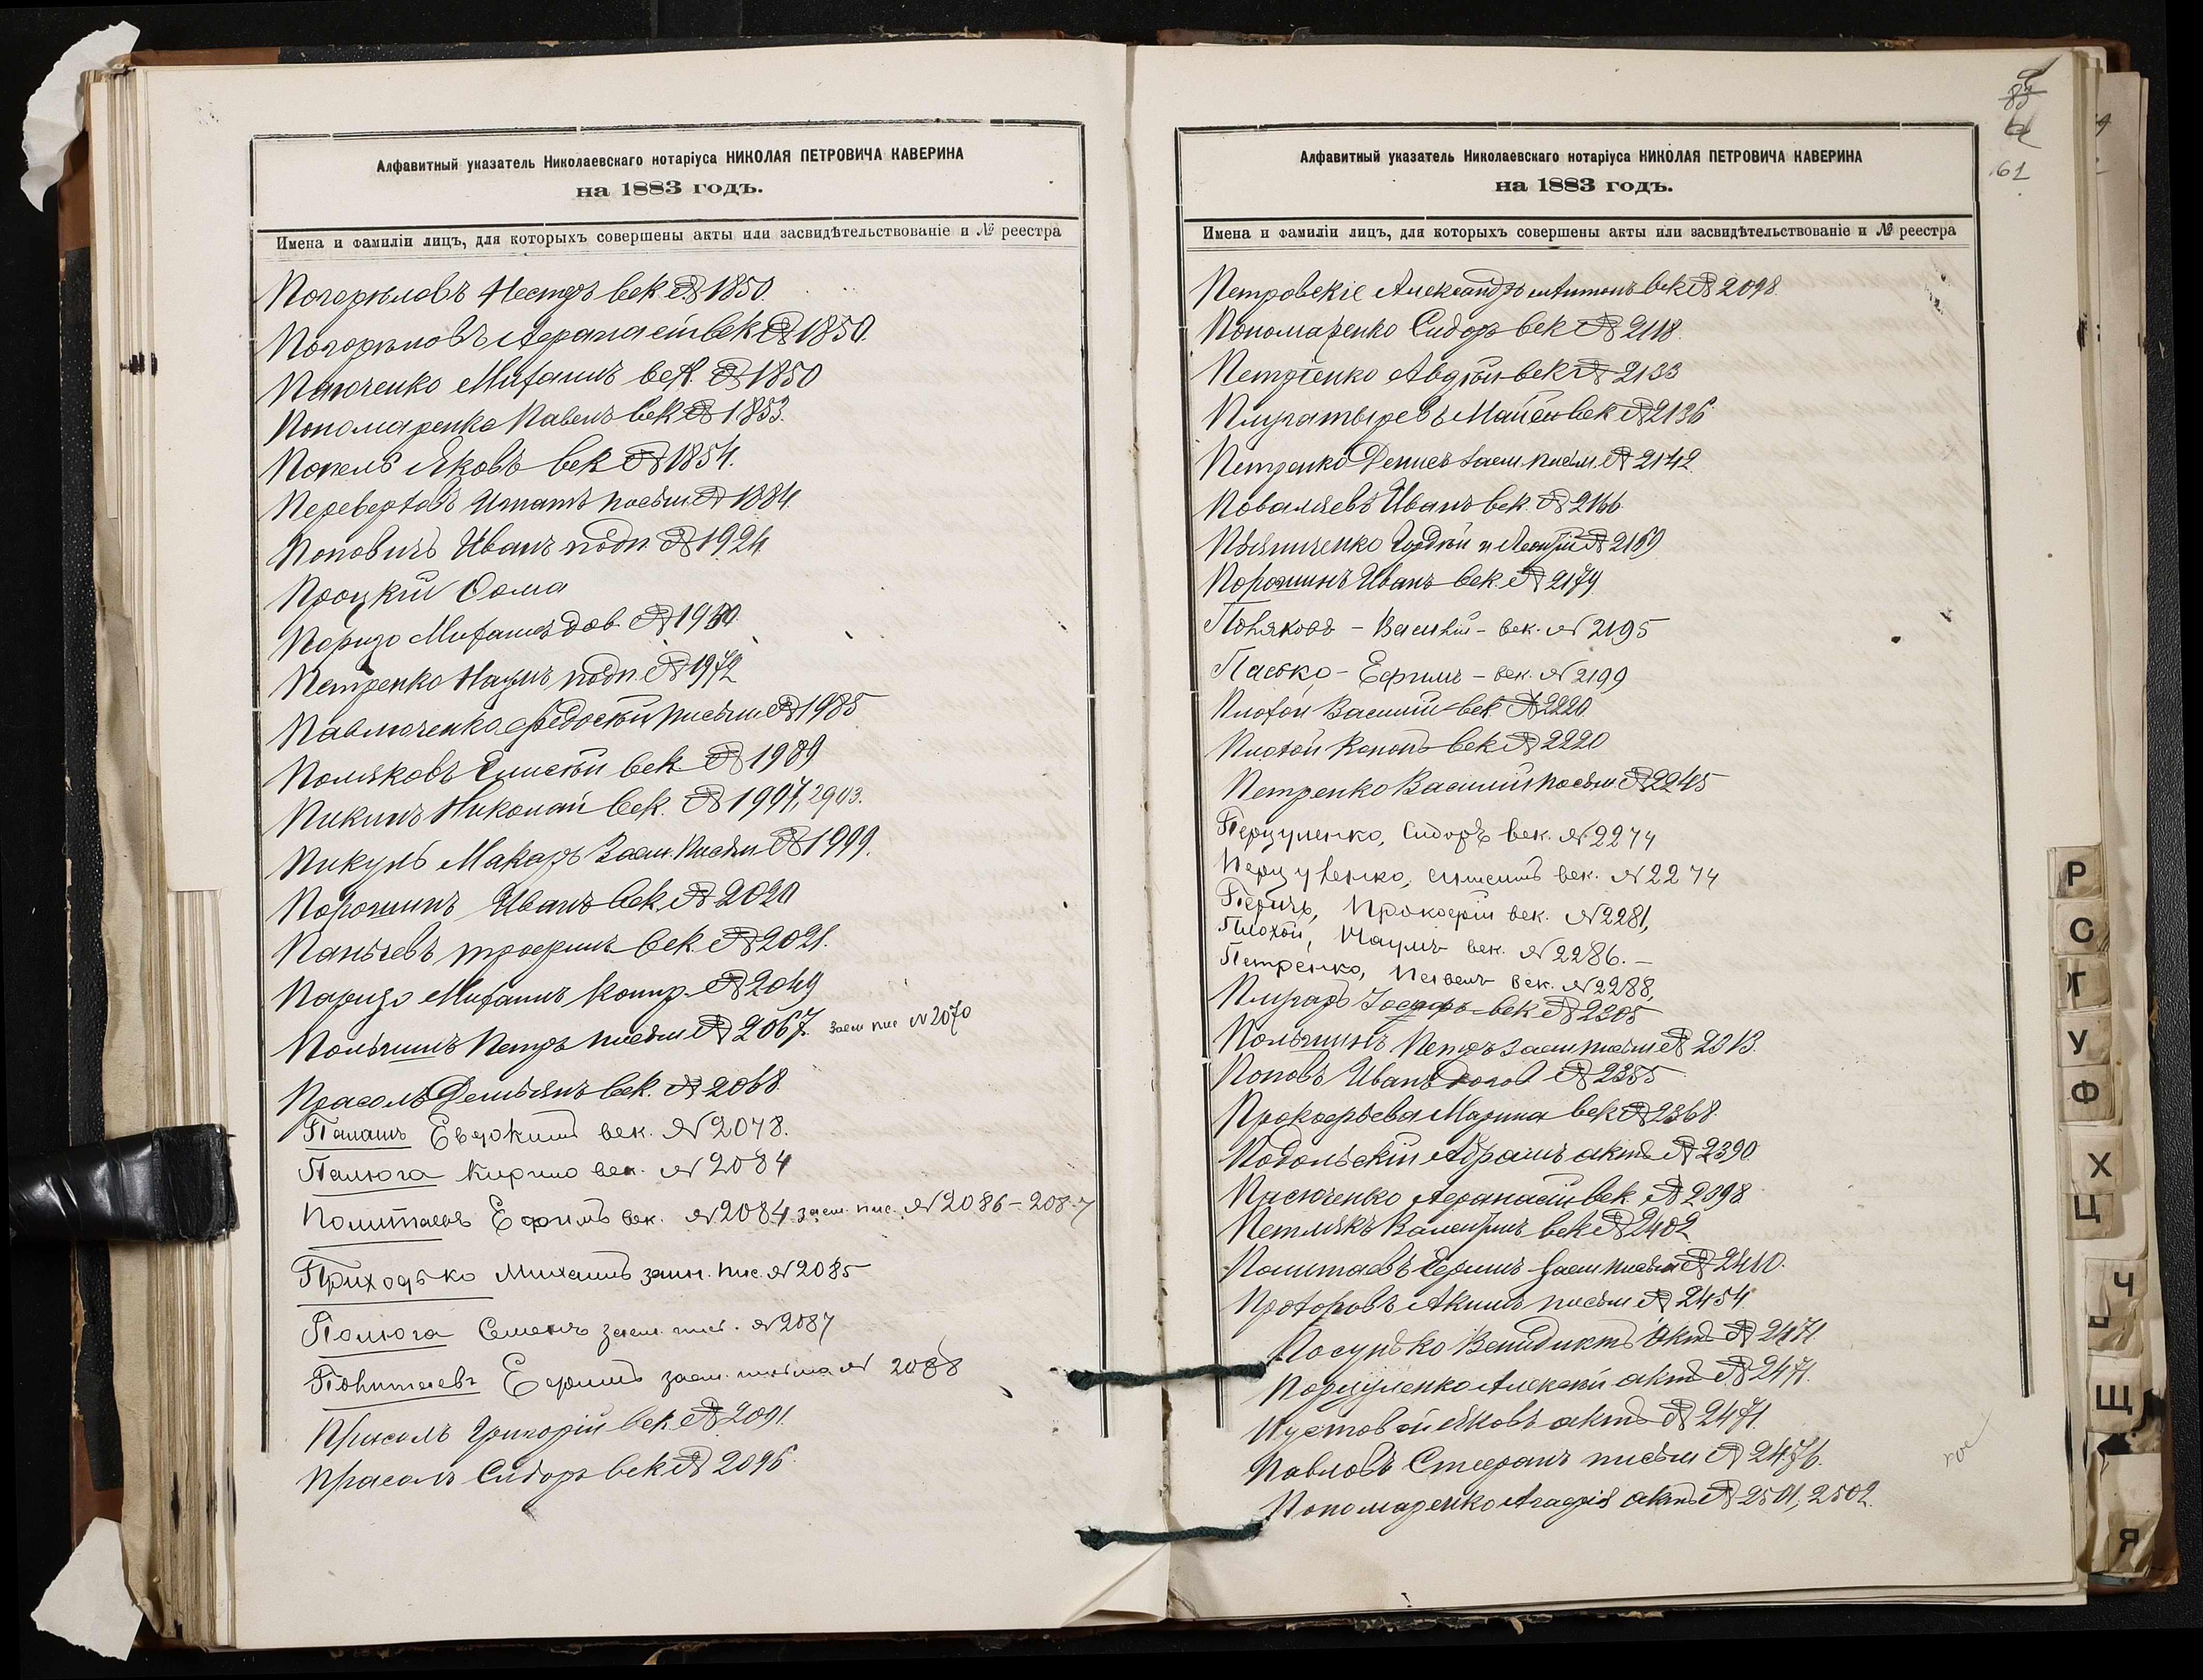 Алфавитный указатель Николаевскаго нотаріуса НИКОЛАЯ ПЕТРОВИЧА КАВЕРИНА
на 1883 годъ.
Имена и фамиліи лицъ, для которыхъ совершены акты или засвидѣтельствованіе и № реестра
Погорѣловъ Несторъ век № 1850.
Погорѣловъ Афанасій век № 1850.
Михаилъ век. № 1850
Пономаренко Павелъ век № 1853.
Попель Яковъ век № 1854.
Игнатъ письм. № 1884.
Поповичъ Иванъ подп. № 1924
Процкій Ѳома
Михаилъ дов. №
Петренко Наумъ подп. № 1972
Павлюченко Федосѣй письм № 1985
Поляковъ Елисѣй век. № 1989
Пикинъ Николай век. № 1997, 2903.
Пикуль Макаръ Заем. Письм № 1999.
Порошинъ Иванъ век № 2020
Трофимъ век. № 2021.
Михаилъ Контр. № 2049
Польшинъ Петръ письм № 2067. заем пис № 2070
Прасолъ Демьянъ век. № 2068.
Паламъ Евдокимъ век. № 2078.
Палюга Кирило век. № 2084
Политаевъ Ефимъ век. № 2084 заем. пис. № 2086-2087
Приходько Михаилъ заем. пис. № 2085
Палюга Семенъ заем. пис. № 2087
Политаевъ Ефимъ заем. письмо № 2088
Прасолъ Григорій век № 2091.
Прасолъ Сидоръ век № 2096.
61
Алфавитный указатель Николаевскаго нотаріуса НИКОЛАЯ ПЕТРОВИЧА КАВЕРИНА
на 1883 годъ.
Имена и фамиліи лицъ, для которыхъ совершены акты или засвидѣтельствованіе и № реестра
Петровскіе Александръ и Антонъ век № 2098.
Пономаренко Сидоръ век № 2118.
Петренко Авдѣй век № 2133
Плугатыревъ век № 2136
Петренко Денисъ заем письм. № 2142.
Поваляевъ Иванъ век. № 2166.
Гордѣй и Леонтій № 2169
Порошинъ Иванъ век. № 2179
Поляковъ - Василій - век. № 2195
Пасько - Ефимъ - век. № 2199
Плохой Василій век № 2220.
Плохой Кононъ век № 2220
Петренко Василій письм. № 2245
Перцуленко, Сидоръ век. № 2274
Перцуленко, век. № 2274
Прокофій век. № 2281,
Плохой, Наумъ век. № 2286. -
Петренко, Павелъ век. № 2288,
Плугарь Іосифъ век № 2305
Польшинъ Петръ заем письм № 2313.
Поповъ Иванъ догов № 2355
Прокофьева Марина век № 2368.
Подольскій Абрамъ актъ № 2390.
Пасюченко Афанасій век. № 2398.
Петлякъ Валентинъ век № 2402.
Политаевъ Ефимъ заем письм № 2410.
Прохоровъ Акимъ письм № 2454.
Посунько Венидиктъ актъ № 2471.
Порцуленко Алексѣй актъ № 2471.
Пустовой Яковъ актъ № 2471.
Павловъ Стефанъ письм № 2476.
Пономаренко актъ № 2501, 2502.
Р
С
Т
У
Ф
Х
Ц
Ч
Щ
Я